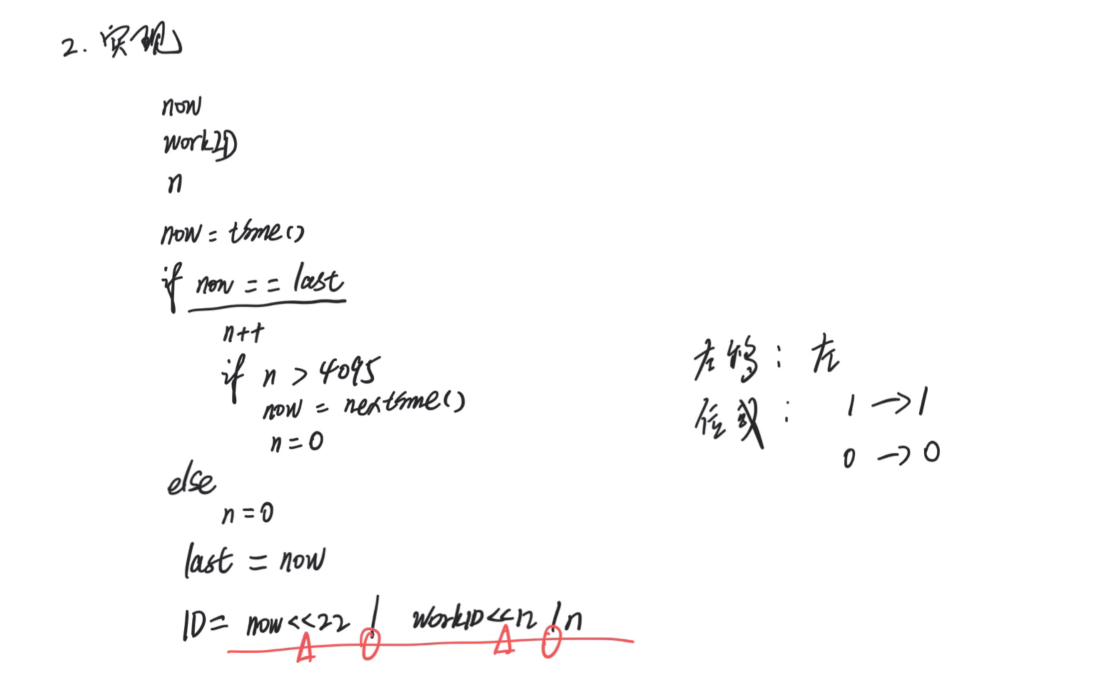 2. 实现
now
workID
n
now = time()
if now == last
n++
if n > 4095
now = nextime()
n = 0
else
n = 0
last = now
ID = now<<22 | workID<<12 | n
左移: 左
位或: 1 → 1
0 → 0